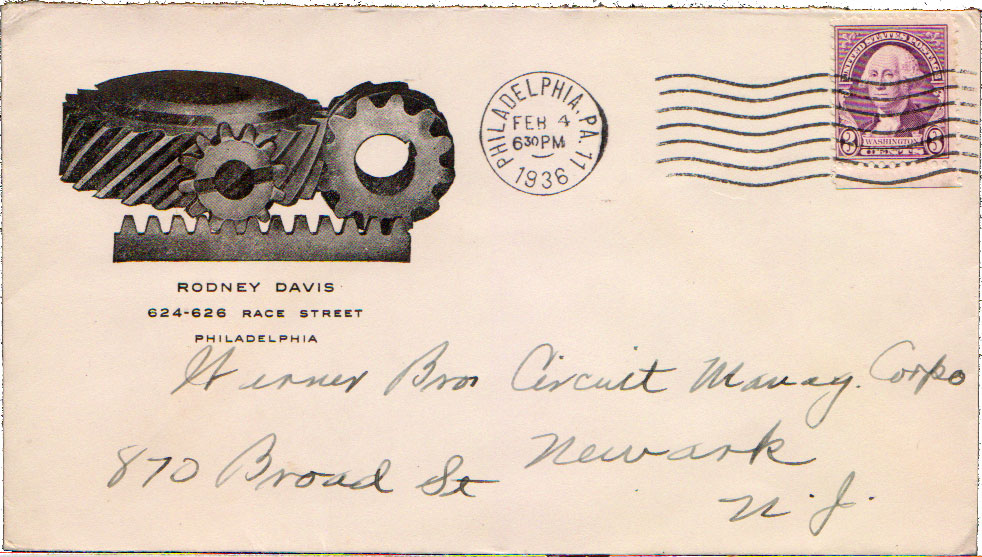 RODNEY DAVIS
624-626 RACE STREET
PHILADELPHIA
PHILADELPHIA, PA. 11
FEB 4
6 30 PM
1936
UNITED STATES POSTAGE
WASHINGTON
3 3
Warner Bros Circuit Manag. Corpo
870 Broad St Newark
N. J.